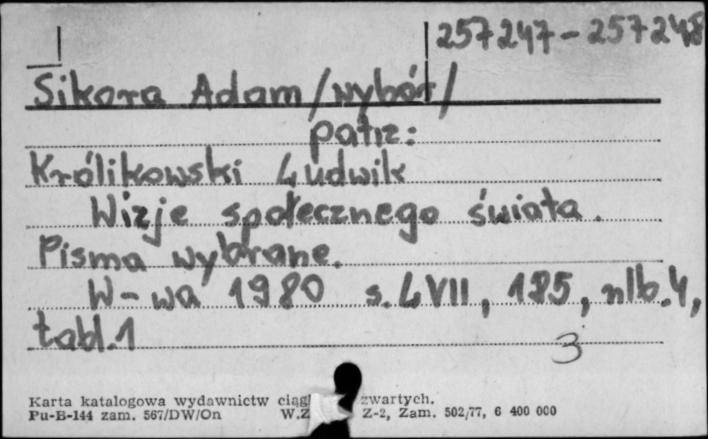 257247-257248
Sikora Adam /wybór/
patrz:
Królikowski Ludwik
Wizje społecznego świata.
Pisma wybrane.
W-wa 1980 s. LVII, 185, nlb. 4,
tabl. 1
3
Karta katalogowa wydawnictw ciągł zwartych.
Pu-B-144 zam. 567/DW/On W.Z Z-2, Zam. 502/77, 6 400 000